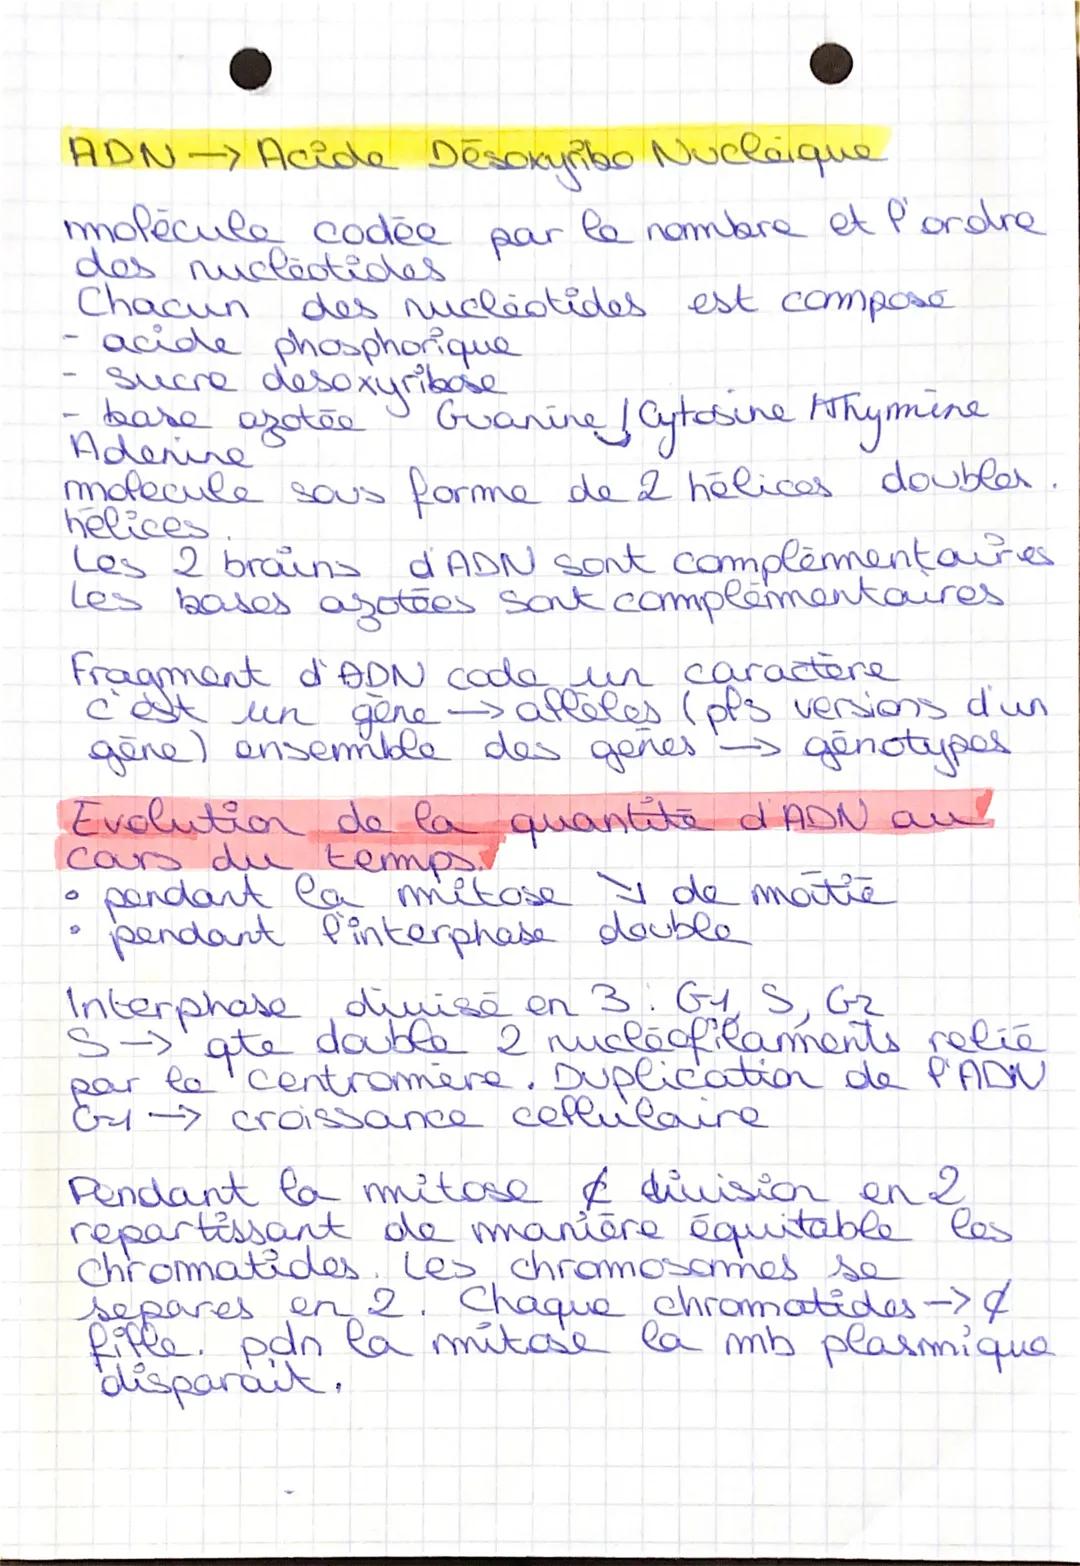 ADN → Acide Désoxyribo Nucléique
molécule codée par le nombre et l'ordre
des nucléotides
Chacun des nucléotides est composé
- acide phosphorique
- sucre desoxyribose
- base azotée Guanine / Cytosine Thymine
Adenine
molecule sous forme de 2 hélices doubles.
hélices.
Les 2 brains d'ADN sont complémentaires
Les bases azotées sont complémentaires
Fragment d'ADN code un caractère
c'est un gène → allèles (pls versions d'un
gène) ensemble des gènes → génotypes
Evolution de la quantité d'ADN au
cours du temps.
• pendant la mitose ↘ de moitié
• pendant l'interphase double
Interphase divisé en 3 : G1, S, G2
S → qte double 2 nucléofilaments relié
par le centromère. Duplication de l'ADN
G1 → croissance cellulaire
Pendant la mitose ¢ division en 2
repartissant de manière équitable les
chromatides. Les chromosomes se
separes en 2. Chaque chromatides → ¢
fille. pdn la mitose la mb plasmique
disparait.